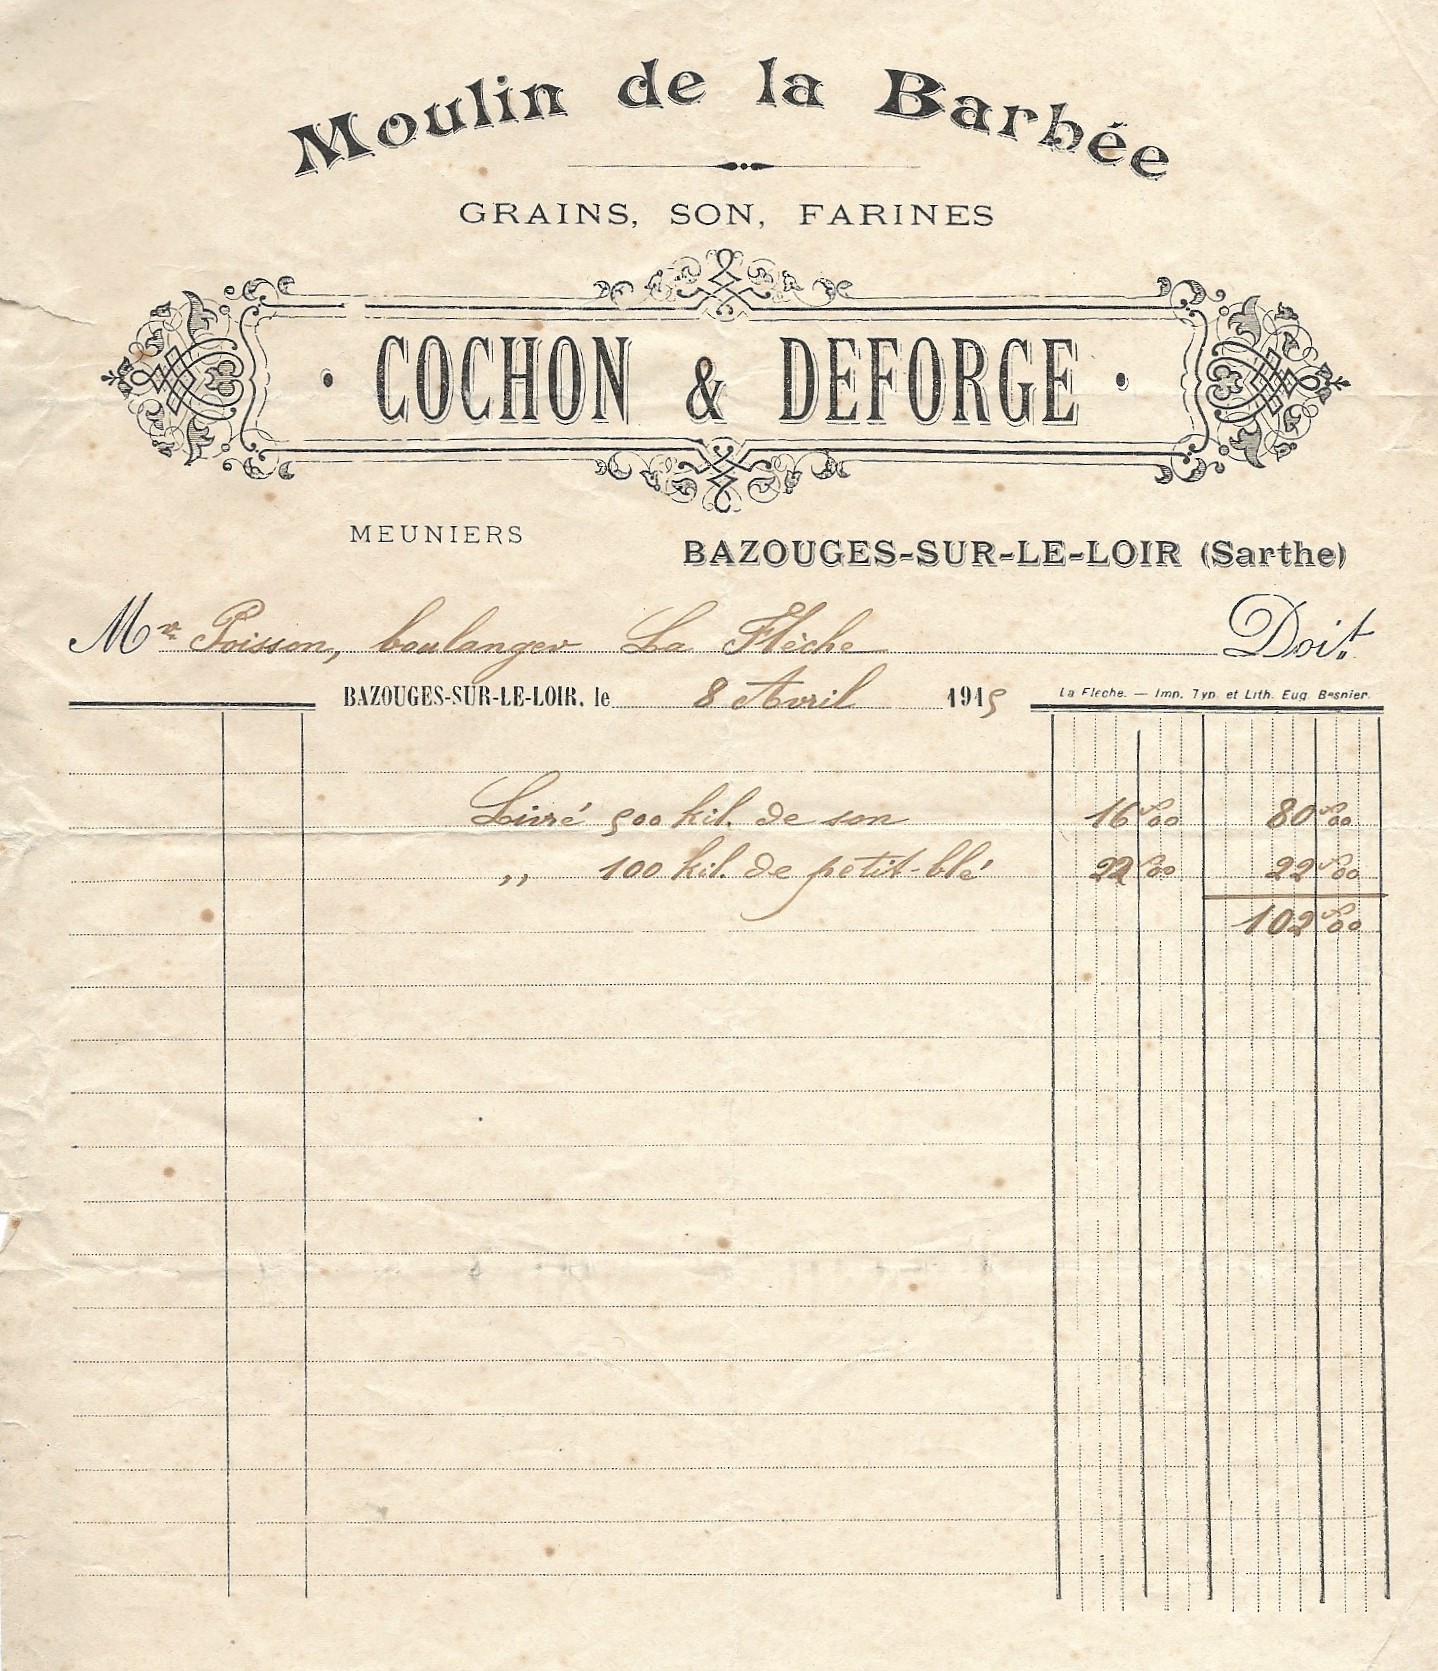 Moulin de la Barbée
GRAINS, SON, FARINES
· COCHON & DEFORGE ·
MEUNIERS
BAZOUGES-SUR-LE-LOIR (Sarthe)
Mr Poisson, boulanger La Flèche Doit
BAZOUGES-SUR-LE-LOIR, le 8 Avril 1915
La Flèche. — Imp. Typ. et Lith. Eug. Besnier.
Livré 500 kil. de son 16f00 80f00
,, 100 kil. de petit-blé 22f00 22f00
102f00